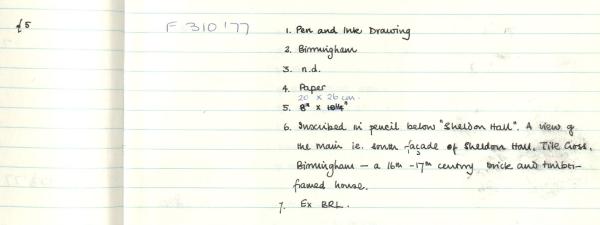 £5
F 310'77
1. Pen and Ink Drawing
2. Birmingham
3. n.d.
4. Paper
20 x 26 cm.
5. 8" x 10¼"
6. Inscribed in pencil below "Sheldon Hall". A view of
the main ie. south façade of Sheldon Hall, Tile Cross,
Birmingham – a 16th -17th century brick and timber-
framed house.
7. Ex BRL.